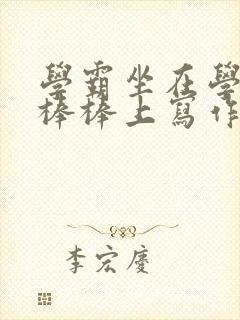 學霸坐在學
棒棒上寫作
李宏慶